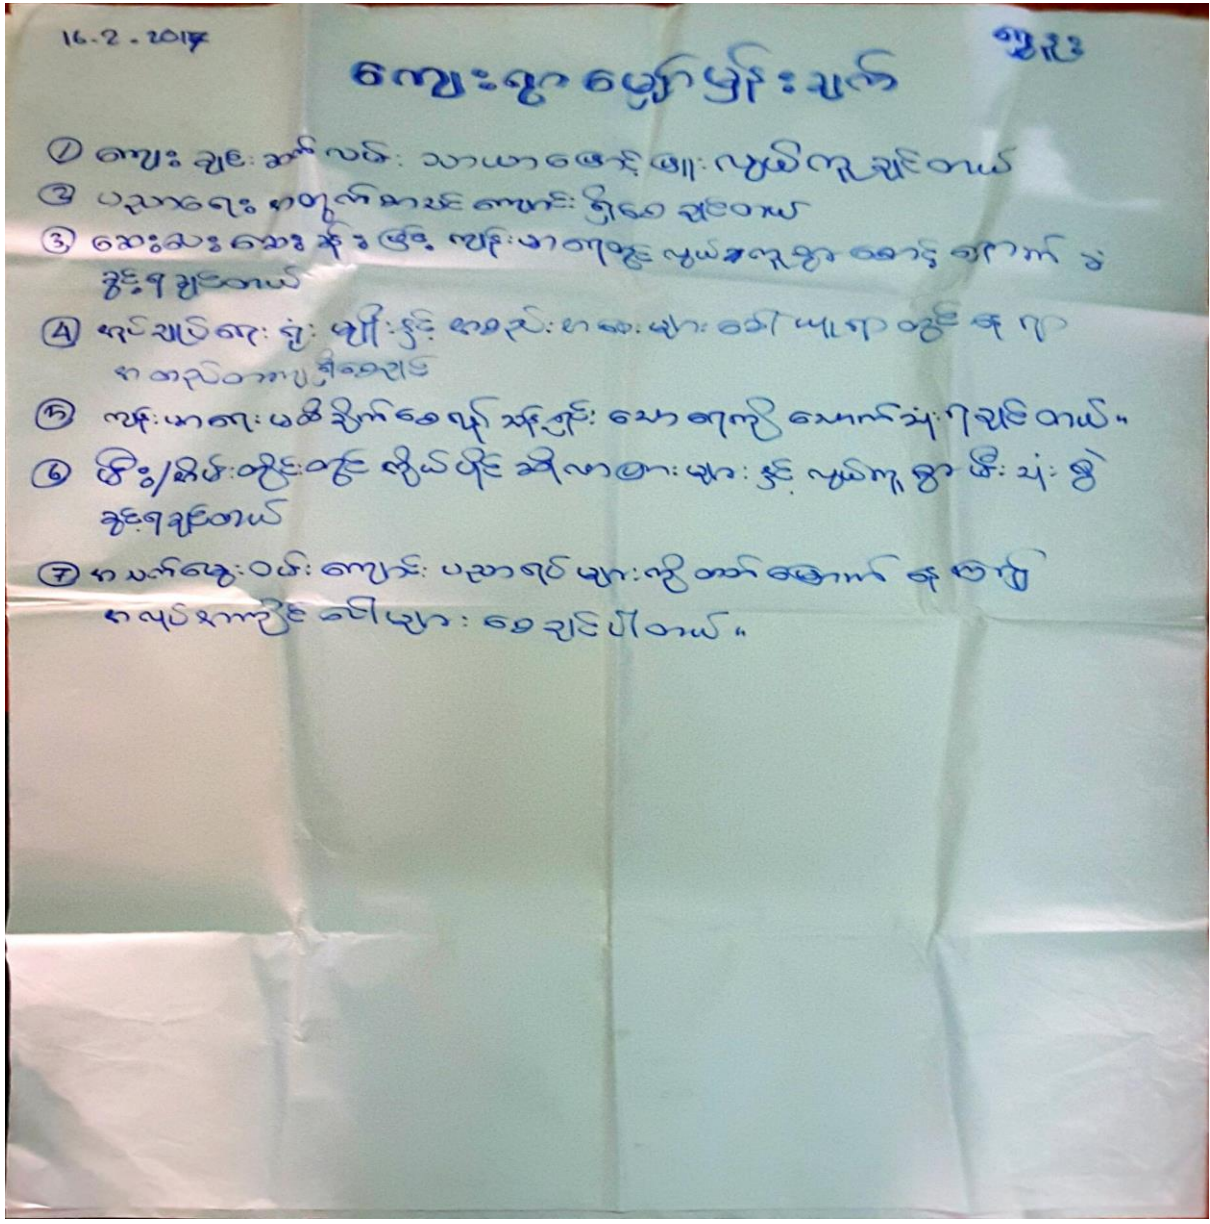 16.2.2017
ကျေးရွာမျှော်မှန်းချက်
① ကျေးချင်းဆက်လမ်း သာယာဖြောင့်ဖြူး လွယ်ကူချင်တယ်
② ပညာရေးအတွက်စာသင်ကျောင်းရှိစေချင်တယ်
③ ဆေးပေးဆေးခန်းဖြင့် ကျန်းမာရေးတွင် လွယ်ကူစွာစောင့်ရှောက်ခံ
ခွင့်ရချင်တယ်
④ အုပ်ချုပ်ရေးရုံး မျိုးနှင့် အစည်းအဝေးများခေါ်ယူရာတွင် နေရာ
အတည်တကျရှိစေချင်
⑤ ကျန်းမာရေးမထိခိုက်စေရန် သန့်ရှင်းသောရေကိုသောက်သုံးရချင်တယ်။
⑥ မီး/အိမ်တိုင်းတွင် ကိုယ်ပိုင်ဆိုလာပြားများနှင့် လွယ်ကူစွာမီးသုံးစွဲ
ခွင့်ရချင်တယ်
⑦ အသက်မွေးဝမ်းကျောင်းပညာရပ်များကိုတတ်မြောက်နေ
အလုပ်အကိုင်ပေါများစေချင်ပါတယ်။